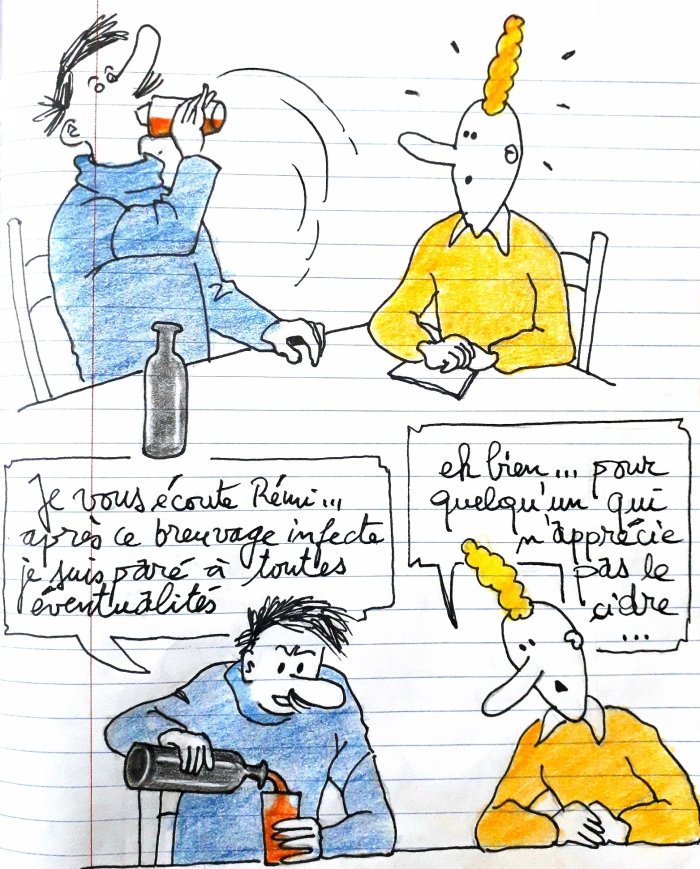 Je vous écoute Rémi...
après ce breuvage infecte
je suis paré à toutes
éventualités
eh bien... pour
quelqu'un qui
n'apprécie
pas le
cidre
...